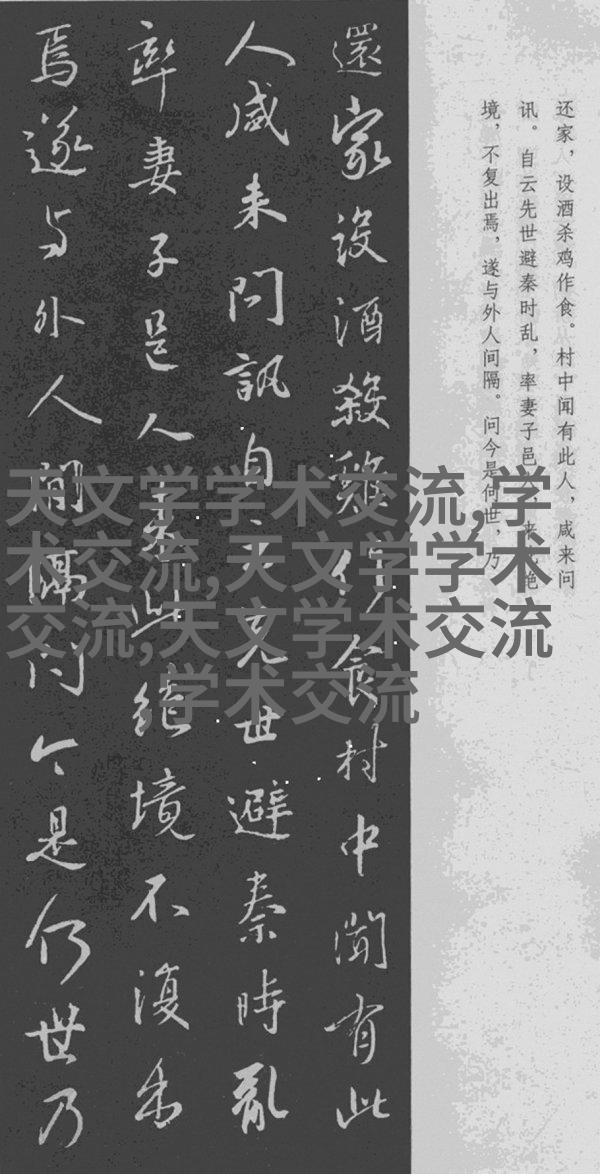 还家，设酒杀鸡作食。村中闻有此人，咸来问
讯。自云先世避秦时乱，率妻子邑 来 绝
境，不复出焉，遂与外人间隔。问今是何世，乃
還家設酒殺雞作食村中聞有此
人咸来問訊自云先世避秦時亂
率妻子邑人来此絶境不復出
焉遂与外人間隔问今是何世乃
天文学学术交流,学
术交流,天文学学术
交流,天文学术交流
,学术交流